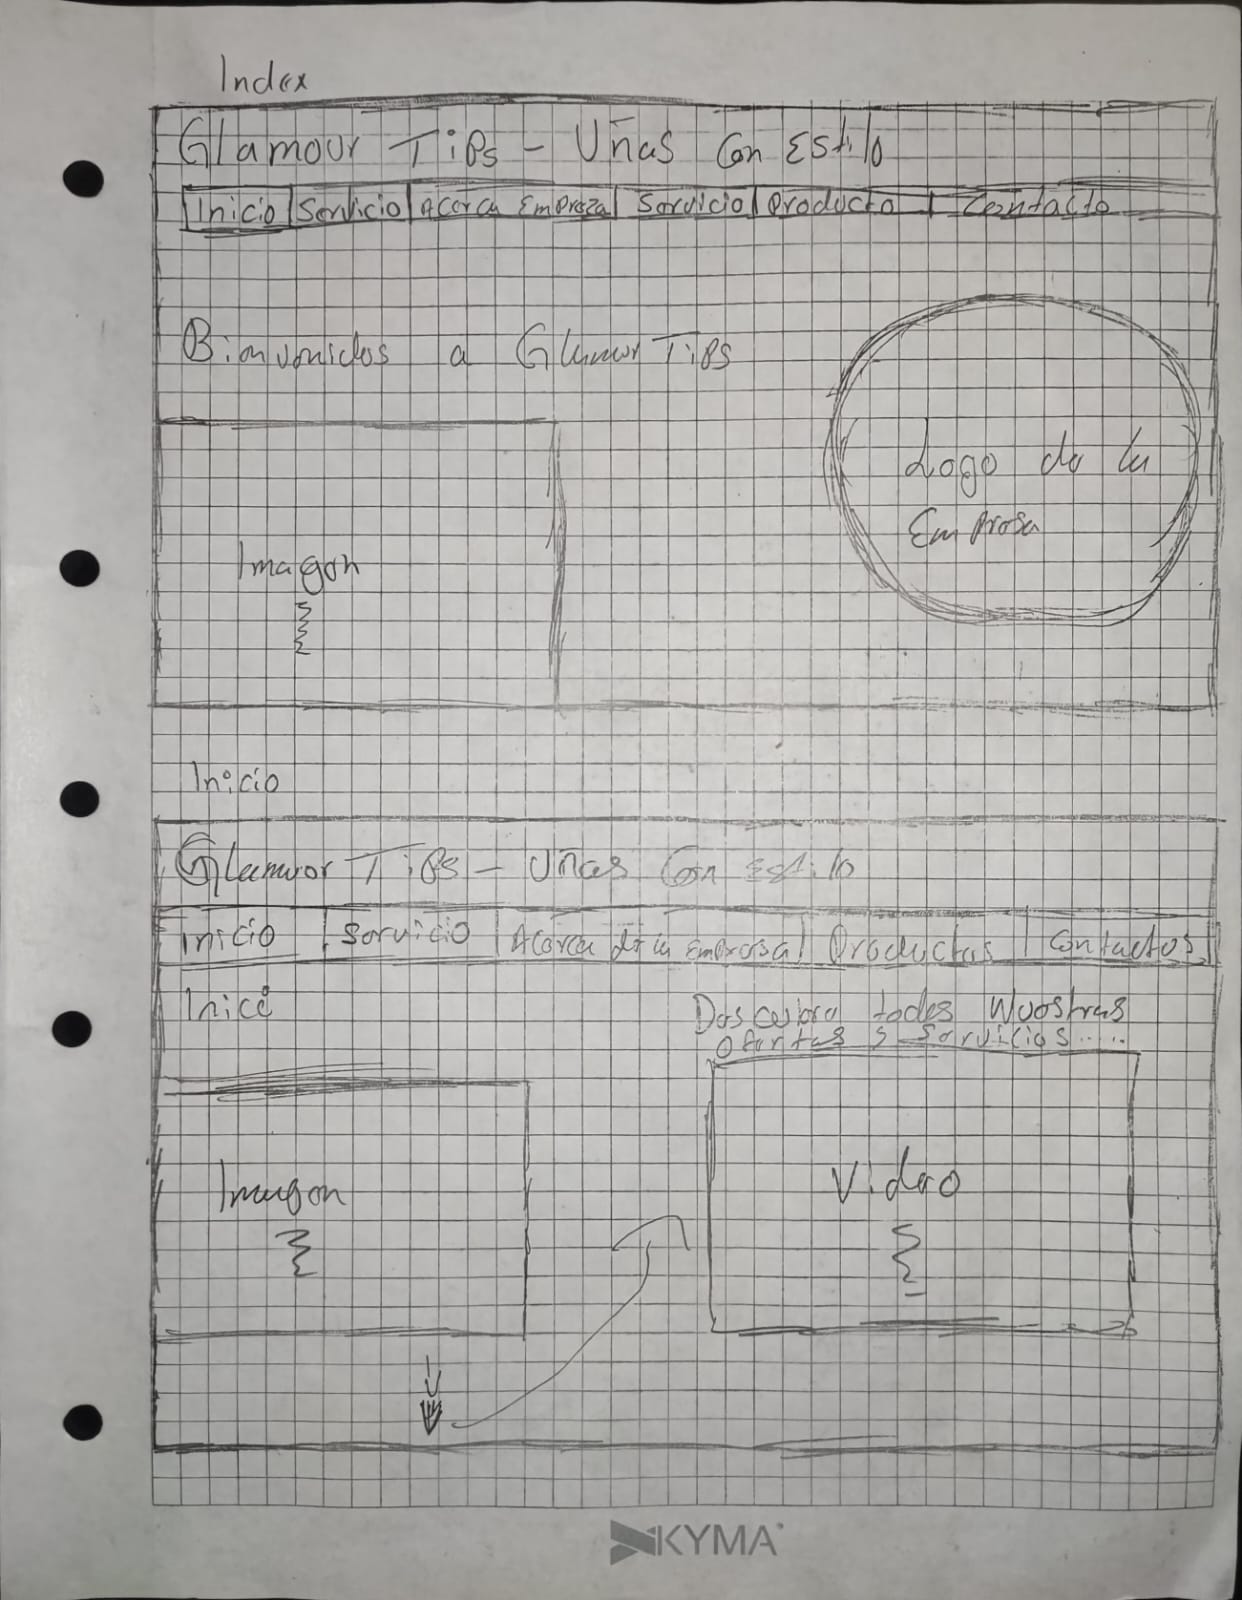 Index
Glamour Tips - Uñas Con Estilo
Inicio Servicio Acerca Empreza Servicio Producto Contacto
Bienvenidos a Glamur Tips
Logo de la
Empresa
Imagen
Inicio
Glamuor Tips - Uñas Con Estilo
Inicio Servicio Acerca de la Empresa Productos Contactos
Inice
Descubra todes Nuostras
Ofertas y Servicios.....
Imagen
Video
KYMA